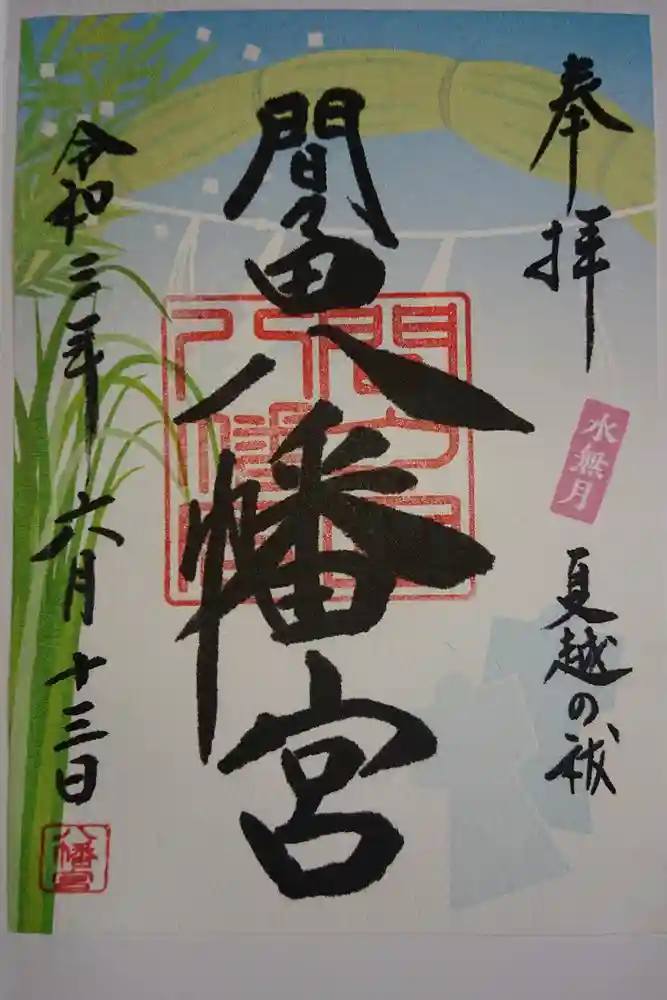 奉拝
水無月
夏越の祓
間々田八幡宮
令和三年六月十三日
八幡宮